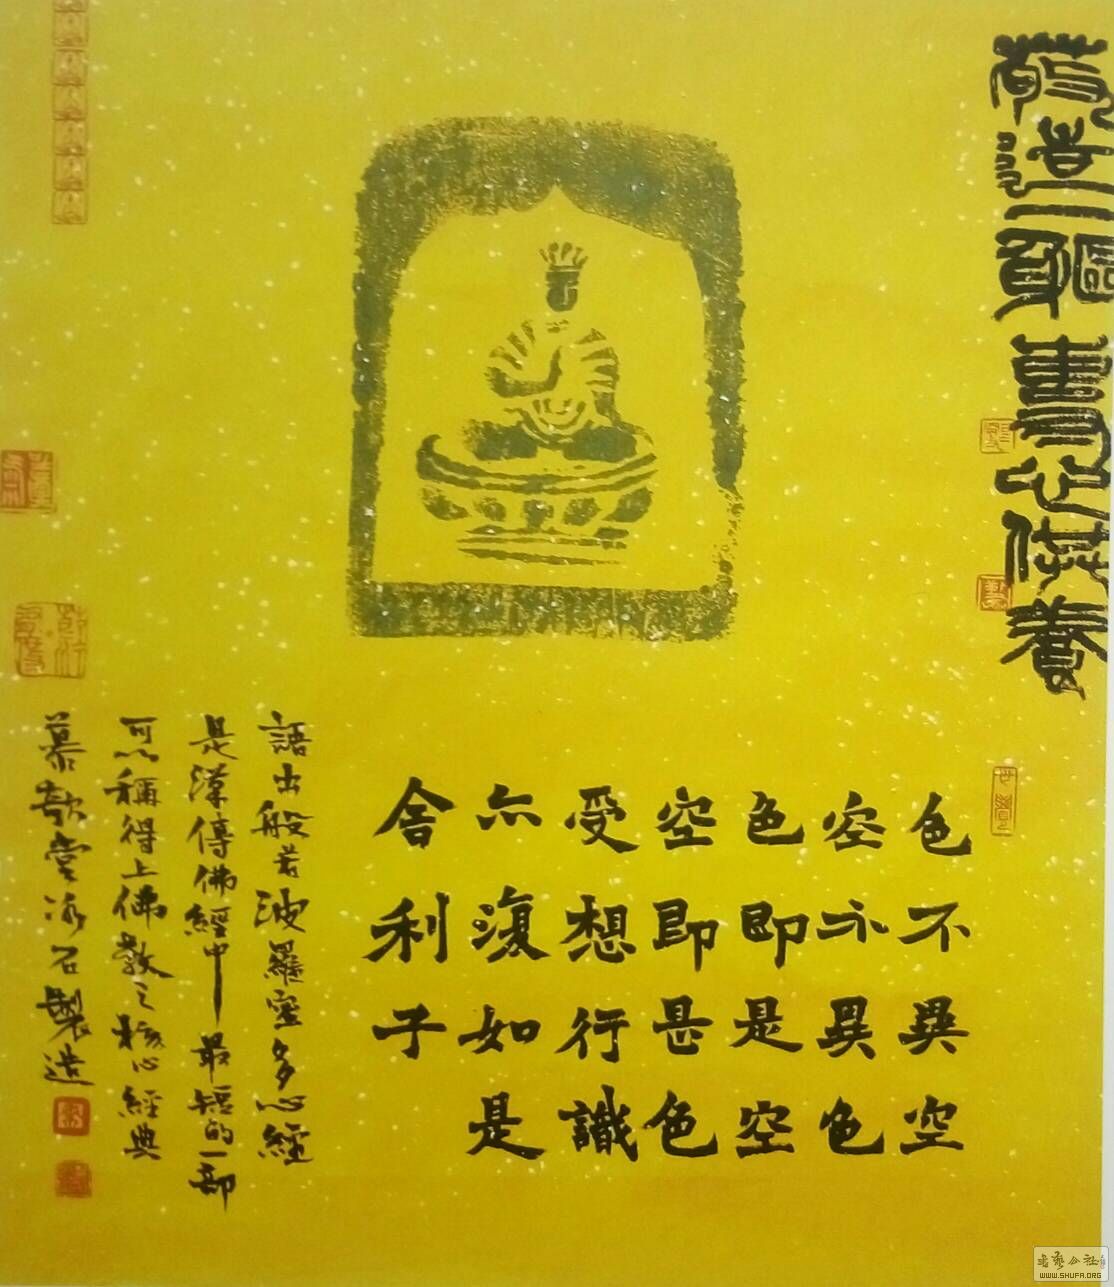 敬造一軀專心供養
色不異空
空不異色
色即是空
空即是色
受想行識
亦復如是
舍利子
語出般若波羅蜜多心經
是漢傳佛經中最短的一部
可以稱得上佛教之核心經典
慕堂冰石製造
书艺公社
WWW.SHUFA.ORG